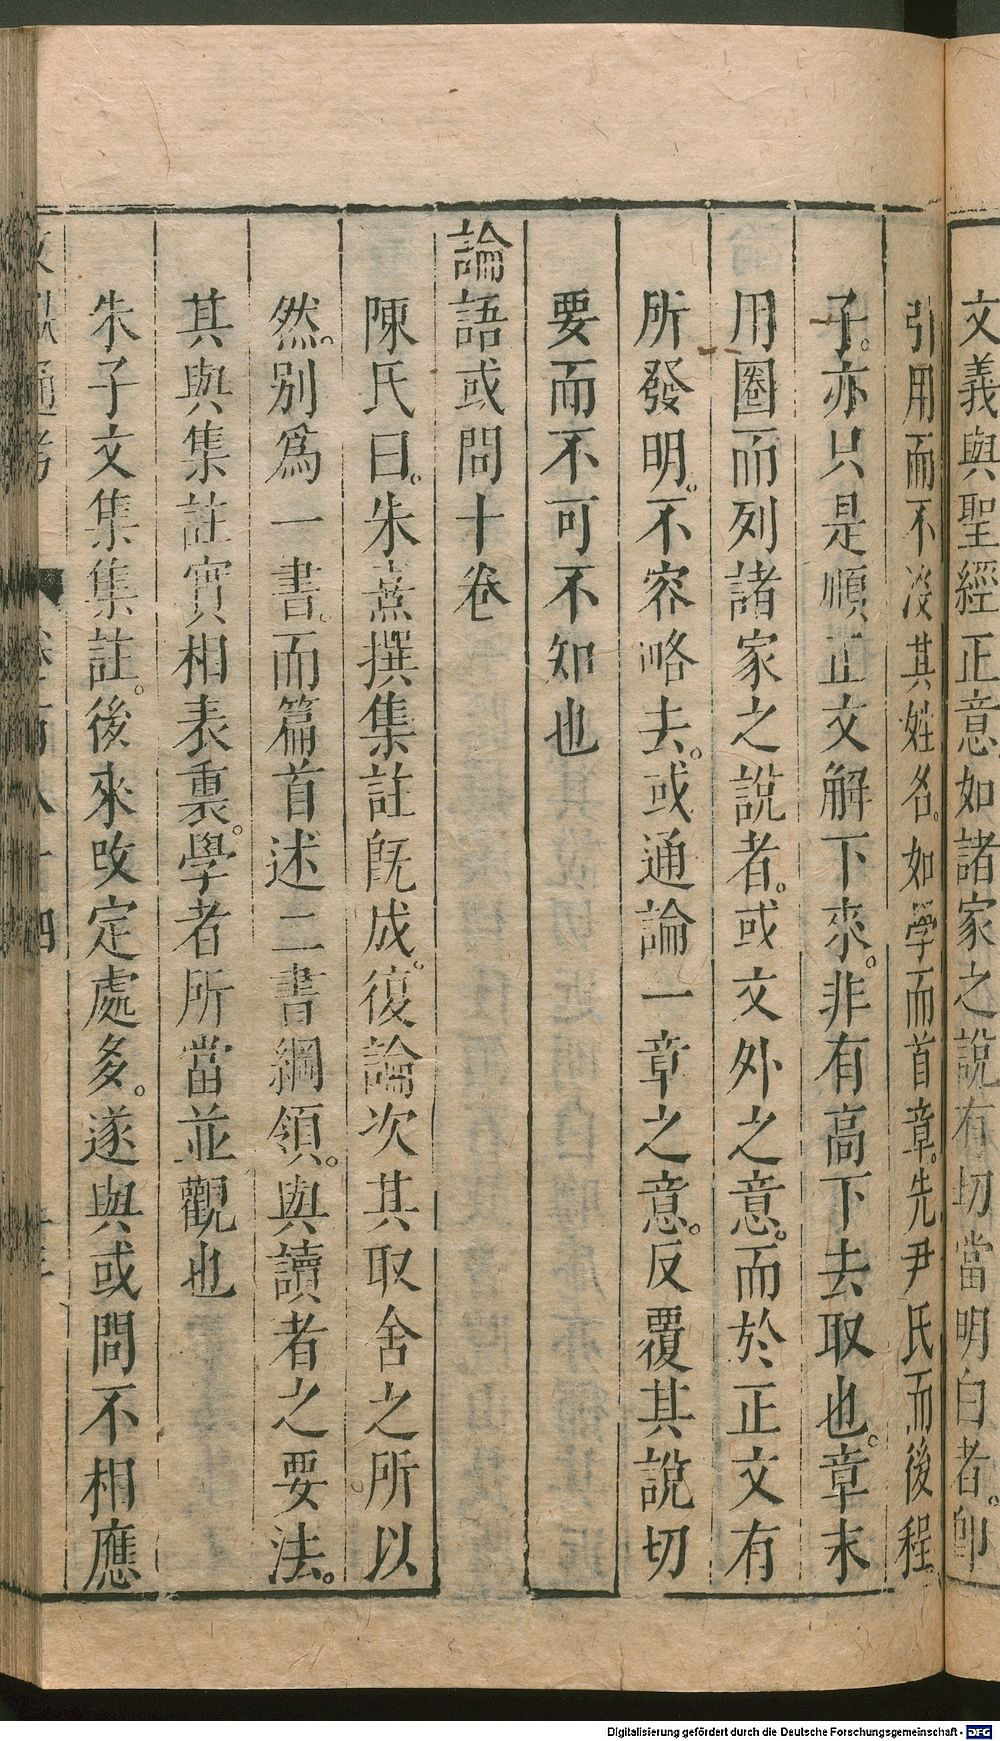 文義與聖經正意如諸家之說有切當明白者。即
引用而不沒其姓名。如學而首章。先尹氏而後程
子。亦只是順正文解下來。非有高下去取也。章末
用圈而列諸家之說者。或文外之意。而於正文有
所發明。不容略去。或通論一章之意。反覆其說切
要而不可不知也
論語或問十卷
陳氏曰。朱熹撰集註旣成。復論次其取舍之所以
然。別爲一書。而篇首述二書綱領。與讀者之要法。
其與集註實相表裏。學者所當並觀也
朱子文集集註。後來改定處多。遂與或問不相應
Digitalisierung gefördert durch die Deutsche Forschungsgemeinschaft - DFG